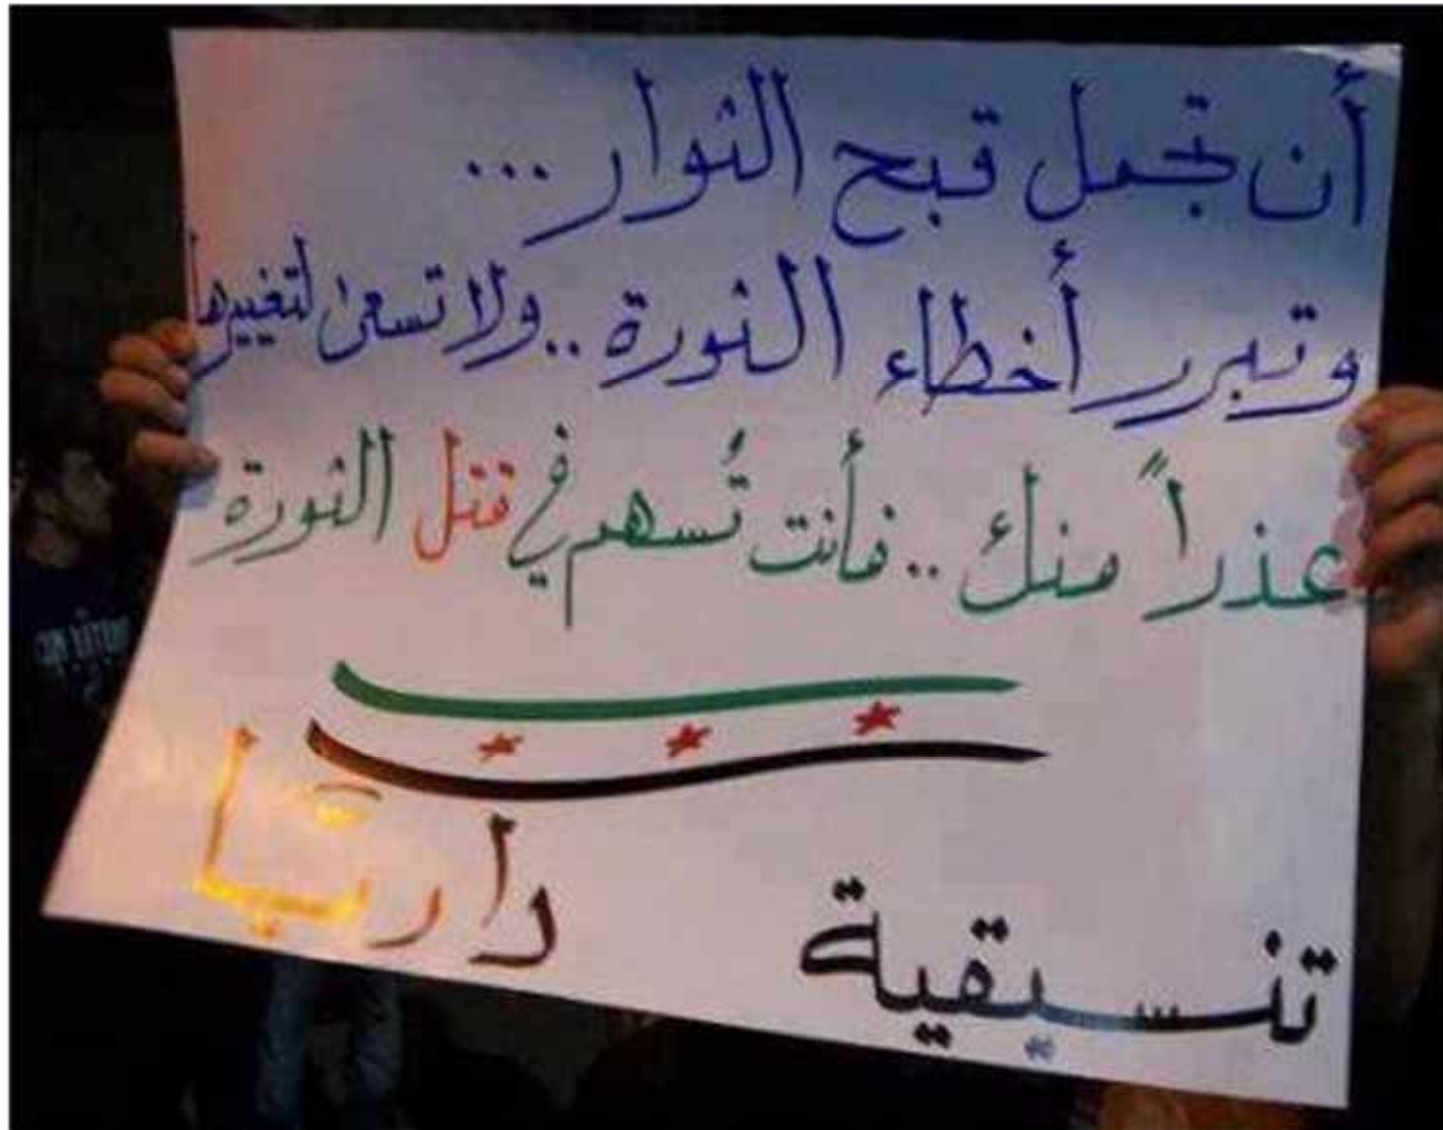 أن تجمل قبح الثوار...
وتبرر أخطاء الثورة..ولا تسعى لتغييرها
عذراً منك..فأنت تُسهم في قتل الثورة
تنسيقية داريّا